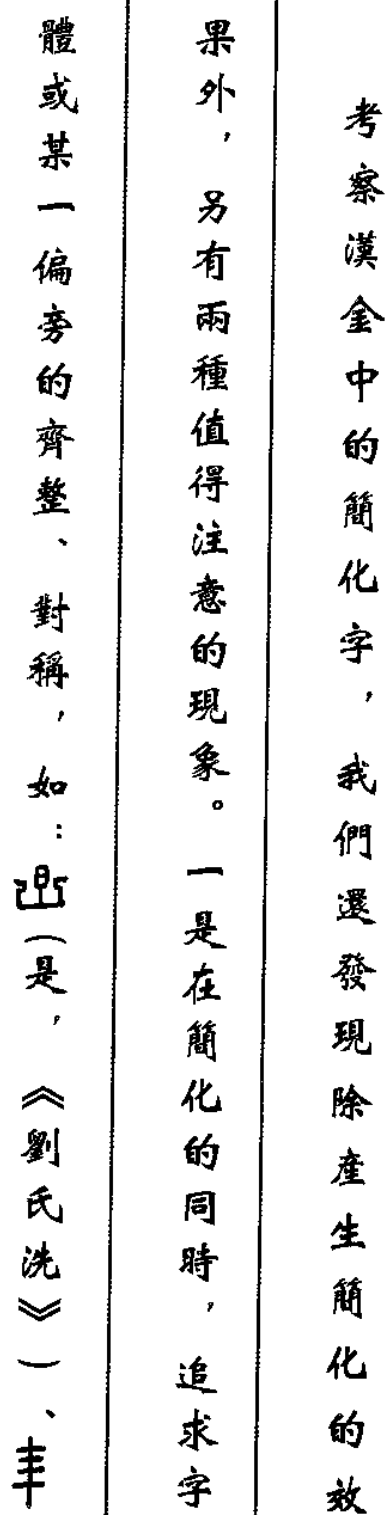 考察漢金中的簡化字，我們還發現除產生簡化的效
果外，另有兩種值得注意的現象。一是在簡化的同時，追求字
體或某一偏旁的齊整、對稱，如：（是，《劉氏洗》）、